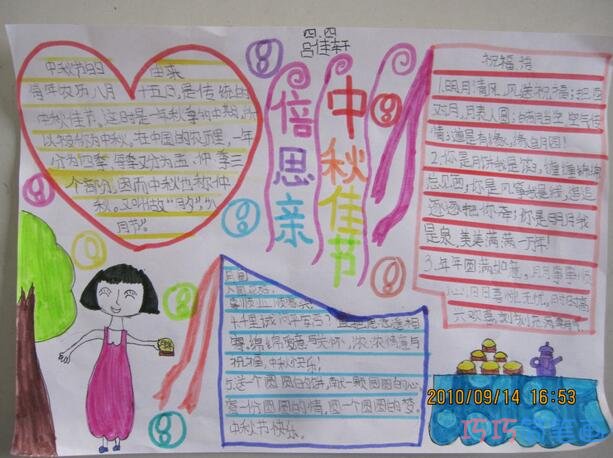 四.四
吕佳轩
中秋佳节
倍思亲
中秋节的由来
每年农历八月十五日,是传统的
中秋佳节。这时是一年秋季的中期,所
以被称为中秋。在中国的农历里,一年
分为四季,每季又分为孟、仲、季三
个部分,因而中秋也称仲
秋。又叫做"月夕",
月节"。
祝福语
1.明月清风,风送祝福;把酒
对月,月表人圆;
情谊是有缘,缘自月圆!
2.你是月饼我是馅,缠缠绵绵
总见面;你是风筝我是线,追追
逐逐把你牵;你是明月我
是泉,美美满满一万年!
3.年年圆满如意,月月事事顺
心,日日喜悦无忧,时时高
兴欢喜,刻刻充满朝气
千里试问平安否?且把思念遥相
寄。绵绵爱意与关怀,浓浓情意与
祝福,中秋快乐!
5.送一个圆圆的饼,献一颗圆圆的心
寄一份圆圆的情,圆一个圆圆的梦。
中秋节快乐。
2010/09/14 16:53